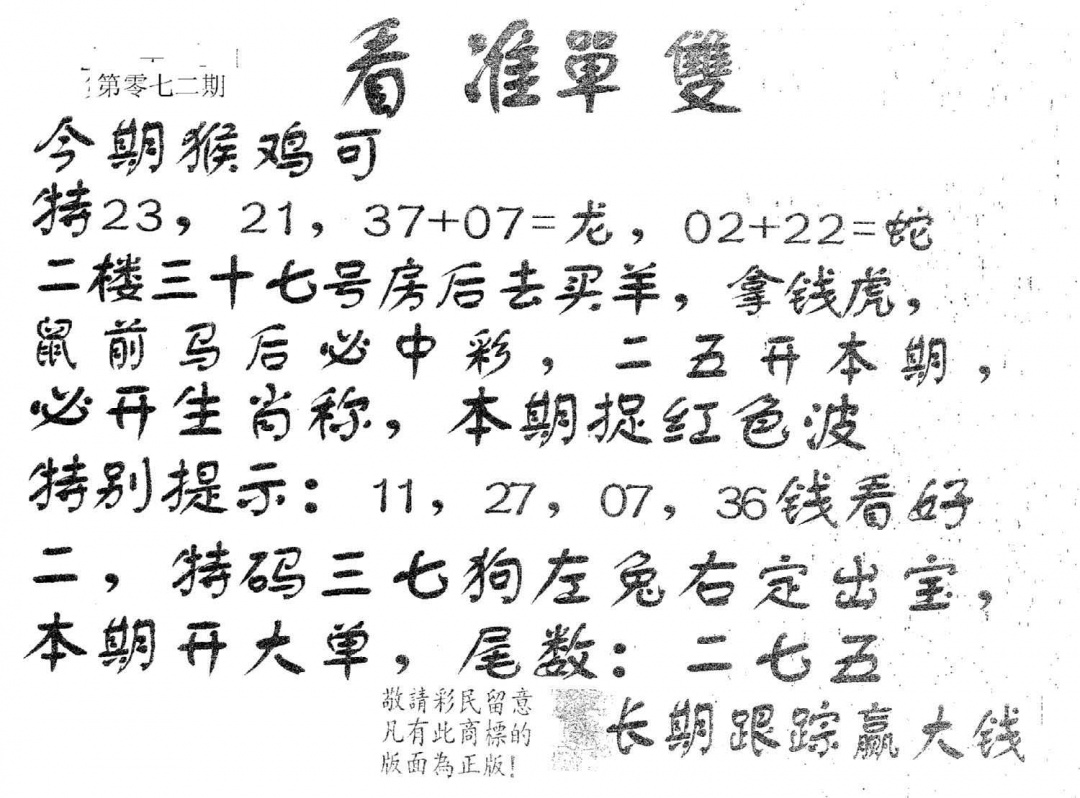 第零七二期
看准單雙
今期猴鸡可
特23，21，37+07=龙，02+22=蛇
二楼三十七号房后去买羊，拿钱虎，
鼠前马后必中彩，二五开本期，
必开生肖称，本期捉红色波
特别提示：11，27，07，36钱看好
二，特码三七狗左兔右定出宝，
本期开大单，尾数：二七五
敬請彩民留意
凡有此商標的
版面為正版！
长期跟踪赢大钱